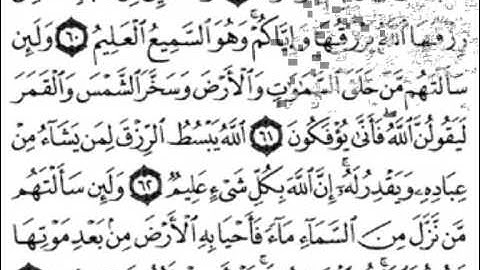 رِزْقَهَا ٱللَّهُ يَرْزُقُهَا وَإِيَّاكُمْ ۚ وَهُوَ ٱلسَّمِيعُ ٱلْعَلِيمُ ٦٠ وَلَئِن
سَأَلْتَهُم مَّنْ خَلَقَ ٱلسَّمَٰوَٰتِ وَٱلْأَرْضَ وَسَخَّرَ ٱلشَّمْسَ وَٱلْقَمَرَ
لَيَقُولُنَّ ٱللَّهُ ۖ فَأَنَّىٰ يُؤْفَكُونَ ٦١ ٱللَّهُ يَبْسُطُ ٱلرِّزْقَ لِمَن يَشَآءُ مِنْ
عِبَادِهِۦ وَيَقْدِرُ لَهُۥٓ ۚ إِنَّ ٱللَّهَ بِكُلِّ شَىْءٍ عَلِيمٌ ٦٢ وَلَئِن سَأَلْتَهُم
مَّن نَّزَّلَ مِنَ ٱلسَّمَآءِ مَآءً فَأَحْيَا بِهِ ٱلْأَرْضَ مِنۢ بَعْدِ مَوْتِهَا